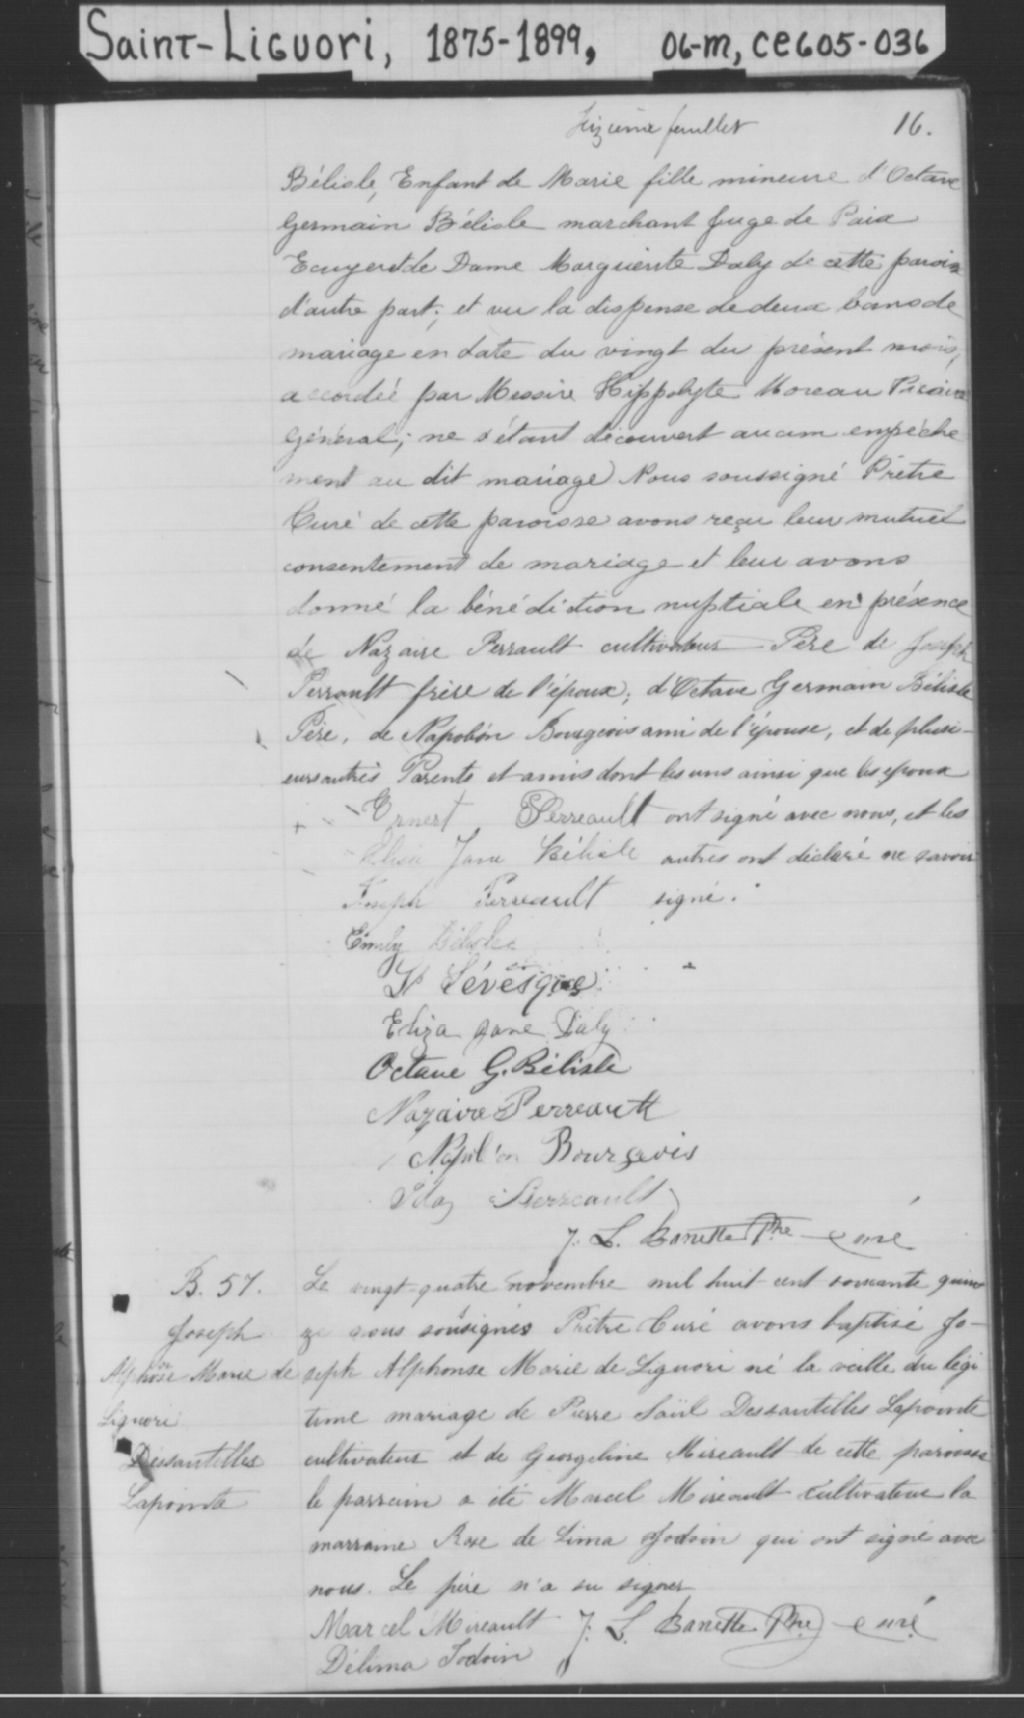 Saint-Liguori, 1875-1899, 06-M, CE605-036
Seizième feuillet 16.
Bélisle, Enfant de Marie fille mineure d'Octave
Germain Bélisle marchant Juge de Paix
Ecuyer et de Dame Marguerite Daly de cette paroisse
d'autre part; et vu la dispense de deux bans de
mariage en date du vingt du présent mois,
accordée par Messire Hippolyte Moreau Vicaire
Général; ne s'étant découvert aucun empêche
ment au dit mariage Nous soussigné Prêtre
Curé de cette paroisse avons reçu leur mutuel
consentement de mariage et leur avons
donné la bénédiction nuptiale en présence
de Nazaire Perrault cultivateur Père de Joseph
Perrault frère de l'époux; d'Octave Germain Bélisle
Père, de Napoléon Bourgeois ami de l'épouse, et de plusi-
eurs autres Parents et amis dont les uns ainsi que les époux
Ernest Perreault ont signé avec nous, et les
Jane Bélisle autres ont déclaré ne savoir
Joseph Perreault signé.
Emily Bélisle
Lévesque
Eliza Jane Daly
Octave G. Bélisle
Nazaire Perreault
Napoléon Bourgeois
Perreault
J. L. Barrette Ptre curé
B. 57. Le vingt-quatre novembre mil huit cent soixante quin
Joseph ze nous soussignés Prêtre Curé avons baptisé Jo-
Alphonse Marie de seph Alphonse Marie de Liguori né la veille du légi
Liguori time mariage de Pierre Saül Dessautelles Lapointe
Dessautelles cultivateur et de Georgeline Mireault de cette paroisse
Lapointe le parrain a été Marcel Mireault cultivateur la
marraine Rose de Lima Jodoin qui ont signé avec
nous. Le père n'a su signer
Marcel Mireault J. L. Barrette Ptre curé
Délima Jodoin